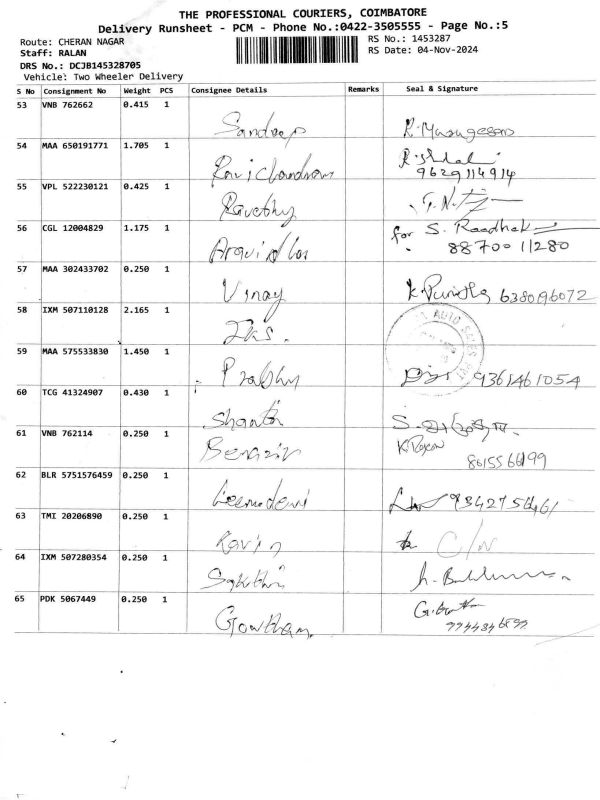 THE PROFESSIONAL COURIERS, COIMBATORE
Delivery Runsheet - PCM - Phone No.:0422-3505555 - Page No.:5
Route: CHERAN NAGAR
RS No.: 1453287
Staff: RALAN
RS Date: 04-Nov-2024
DRS No.: DCJB145328705
Vehicle: Two Wheeler Delivery
S No Consignment No Weight PCS Consignee Details Remarks Seal & Signature
53 VNB 762662 0.415 1 Sandeep R. Murugesan
54 MAA 650191771 1.705 1 Ravichandran 9629114914
55 VPL 522230121 0.425 1
56 CGL 12004829 1.175 1 for S. 8870011280
57 MAA 302433702 0.250 1 Vinay K. 6380196072
58 IXM 507110128 2.165 1 AUTO SALES
59 MAA 575533830 1.450 1 Prabhu 9361461054
60 TCG 41324907 0.430 1 Shanthi S.
61 VNB 762114 0.250 1 8015566199
62 BLR 5751576459 0.250 1 Leemadevi
63 TMI 20206890 0.250 1 Ravin
64 IXM 507280354 0.250 1 Sakthi
65 PDK 5067449 0.250 1 Gowtham